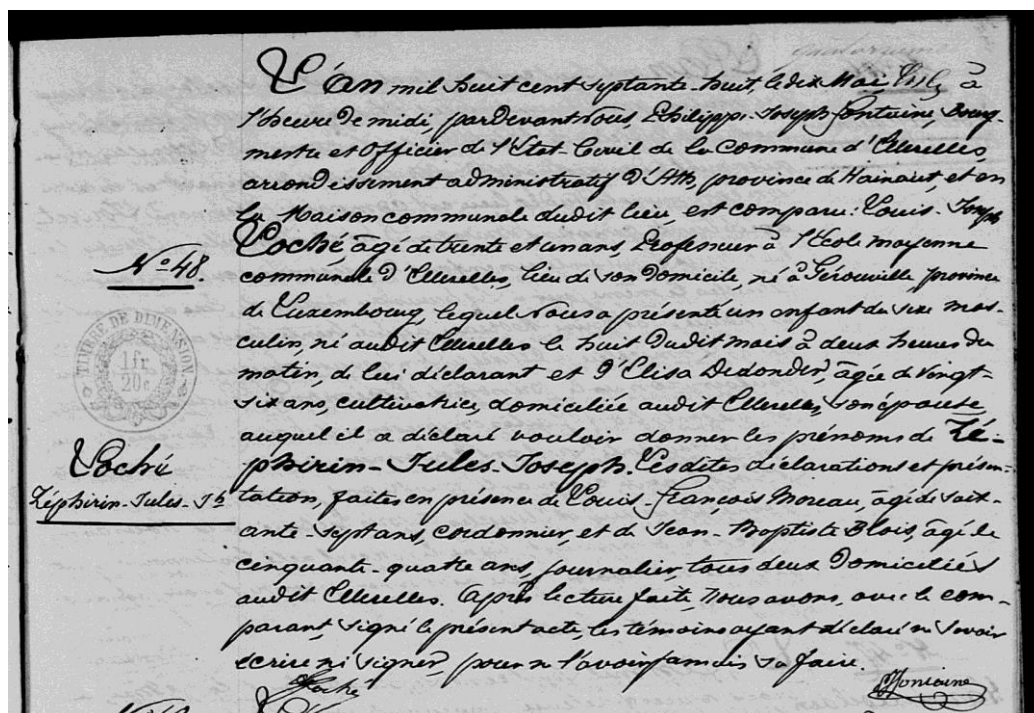 L'an mil huit cent septante-huit, le dix Mai, à
l'heure de midi, pardevant Nous, Philippe-Joseph Fontaine, Bourg-
mestre et Officier de l'Etat-Civil de la Commune d'Ellezelles,
arrondissement administratif d'Ath, province de Hainaut, et en
la Maison communale dudit lieu, est comparu: Louis-Joseph
Poché, âgé de trente et un ans, Professeur à l'Ecole moyenne
N° 48.
communale d'Ellezelles, lieu de son domicile, né à Gérouville, province
de Luxembourg, lequel Nous a présenté un enfant du sexe mas-
culin, né audit Ellezelles le huit dudit mois à deux heures du
TIMBRE DE DIMENSION
1 fr
20 c.
matin, de lui déclarant et d'Elisa Dedonder, âgée de vingt-
six ans, cultivatrice, domiciliée audit Ellezelles, son épouse,
auquel il a déclaré vouloir donner les prénoms de Zé-
Poché
phirin-Jules-Joseph. Lesdites déclarations et présen-
Zéphirin-Jules-Jh
tation, faites en présence de Louis-François Moreau, âgé de soix-
ante-sept ans, cordonnier, et de Jean-Baptiste Blois, âgé de
cinquante-quatre ans, journalier, tous deux domiciliés
audit Ellezelles. Après lecture faite, Nous avons, avec le com-
parant, signé le présent acte, les témoins ayant déclaré ne savoir
écrire ni signer, pour ne l'avoir jamais su faire.
Poché
Fontaine